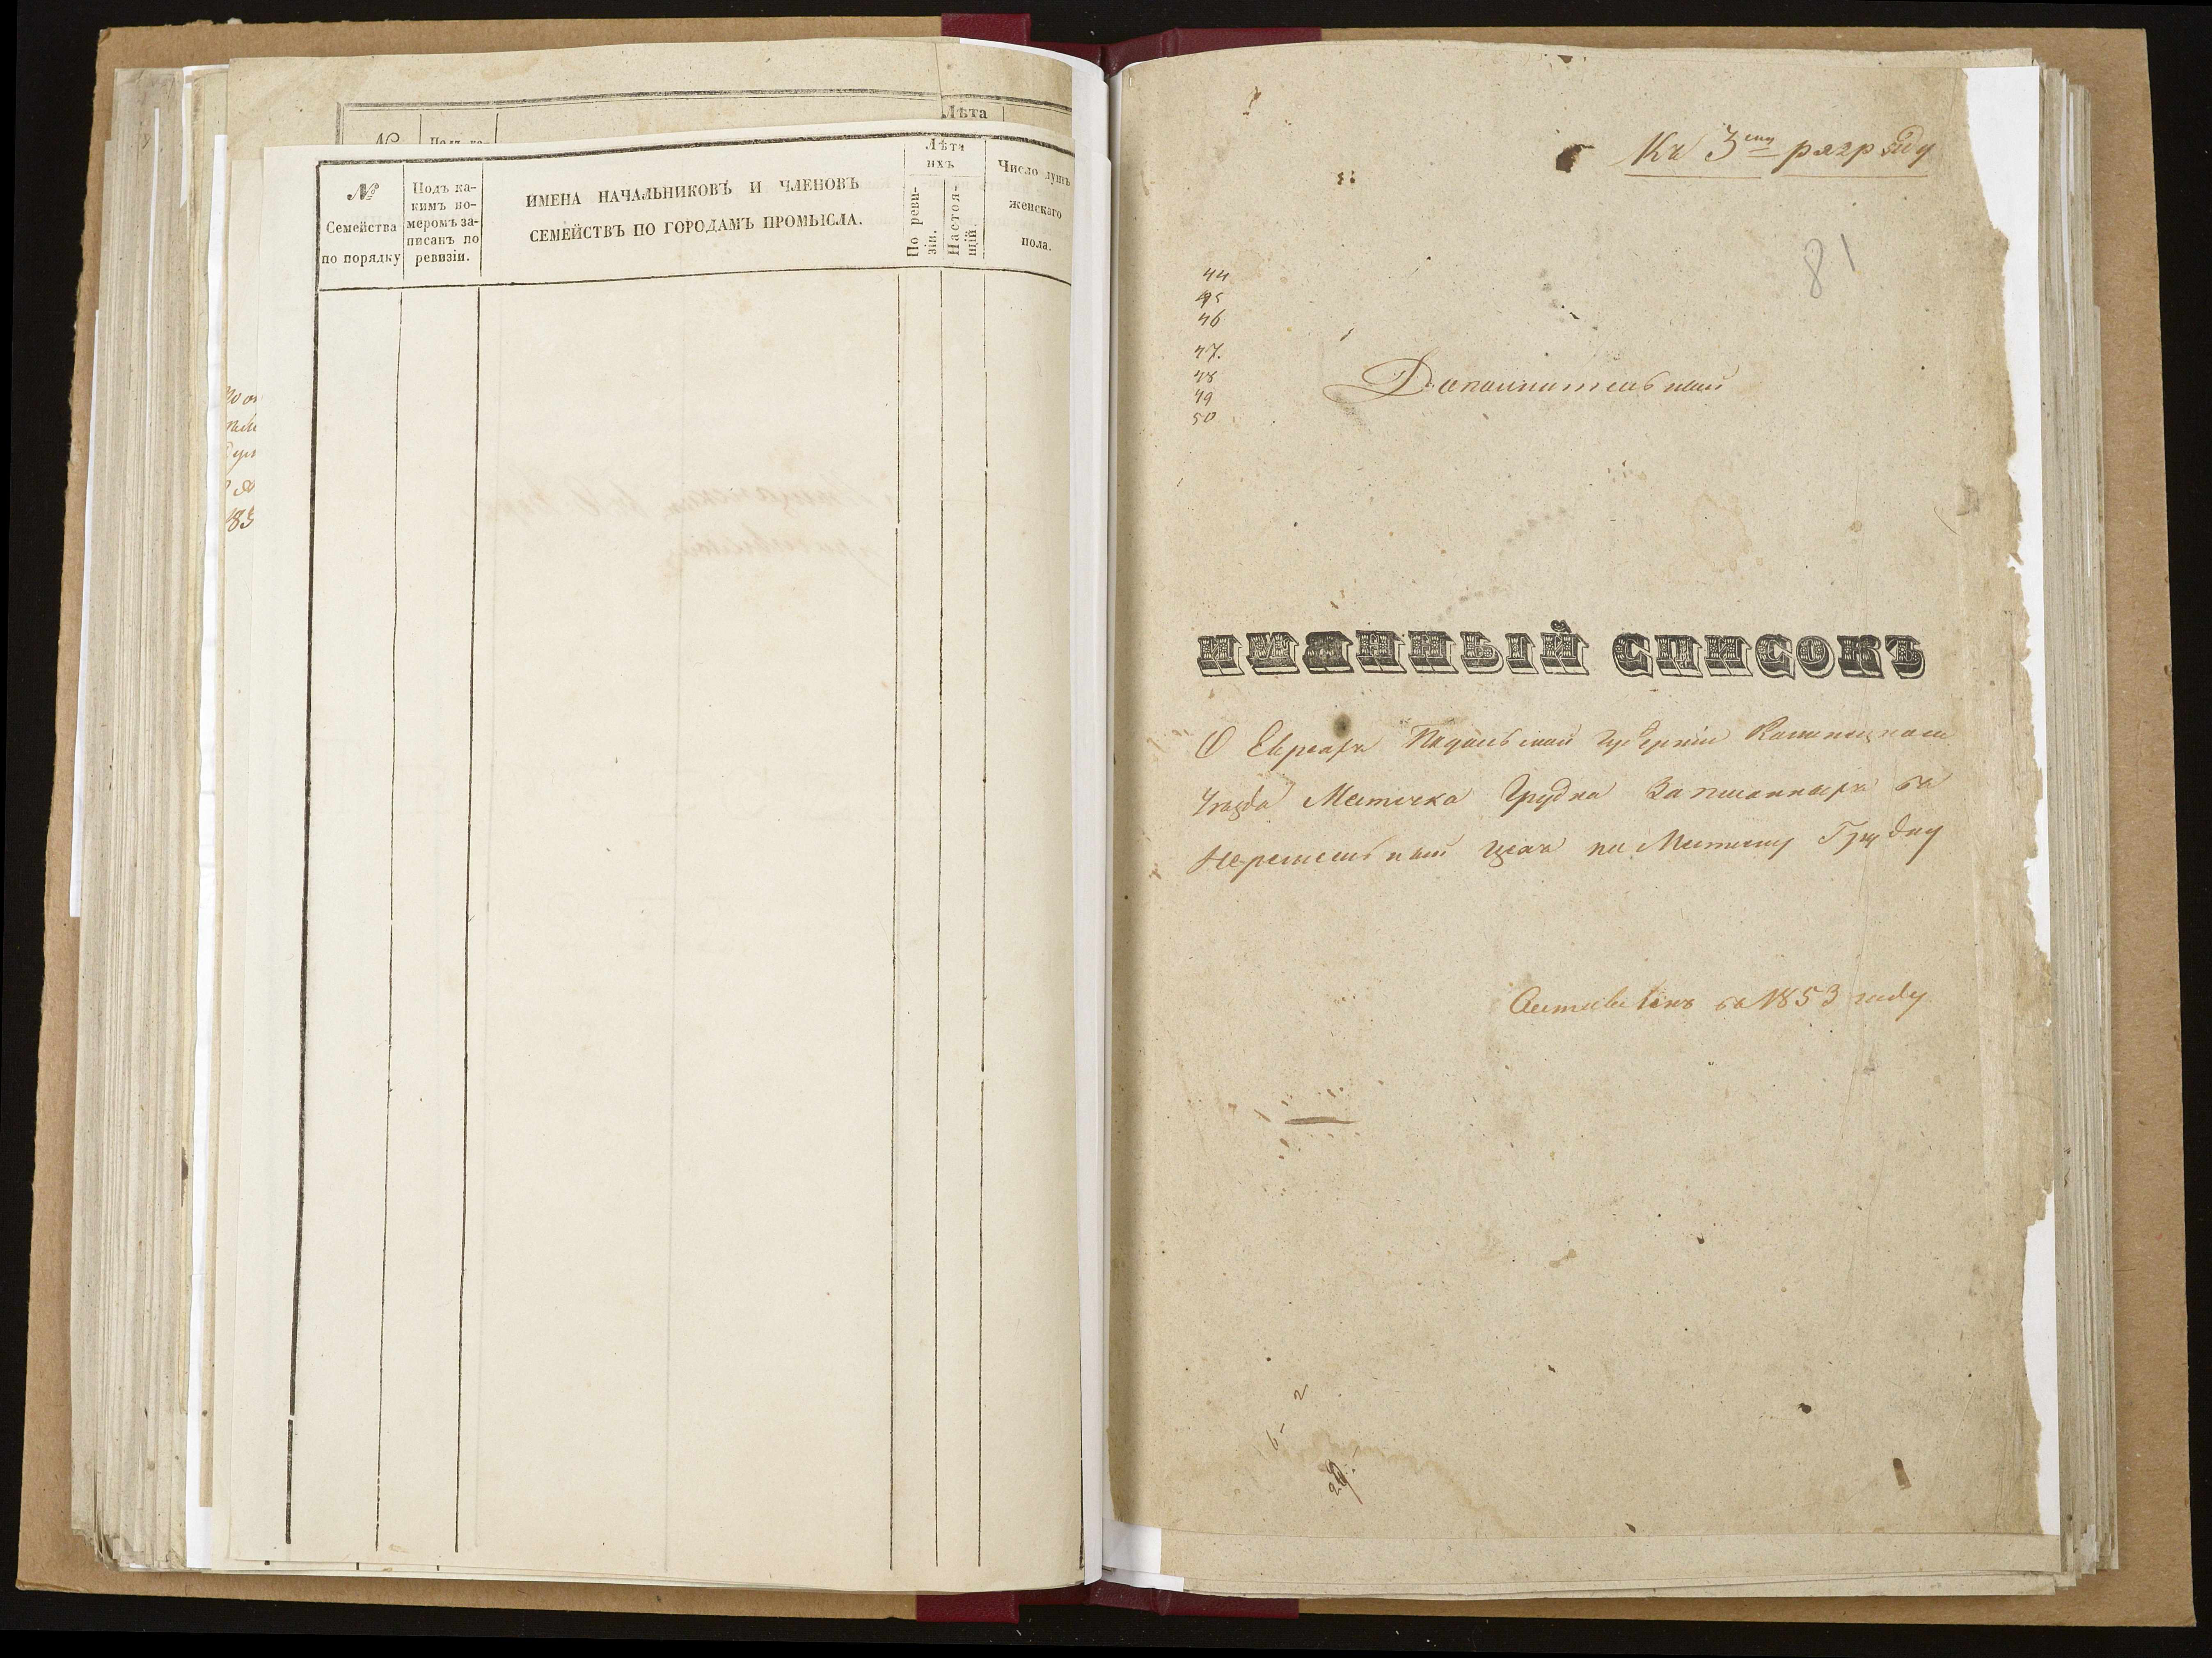 Лѣта
№
Семейства
по порядку
Подъ ка-
кимъ но-
меромъ за-
писанъ по
ревизіи.
ИМЕНА НАЧАЛЬНИКОВЪ И ЧЛЕНОВЪ
СЕМЕЙСТВЪ ПО ГОРОДАМЪ ПРОМЫСЛА.
Лѣта
ихъ
По реви-
зіи.
Настоя-
щій.
Число душъ
женскаго
пола.
Къ 3ему разряду
81
44
45
46
47.
48
49
50
Дополнительный
ИМЯННЫЙ СПИСОКЪ
О Евреахъ Подольской Губерніи Каменецкаго
Уезда Местечка Грудка Записанныхъ въ
цехъ по Местечку Грудку
Составленъ въ 1853 году